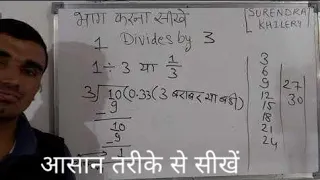 भाग करना सीखें
SURENDRA
KHILERY
1 Divides by 3
1÷3 या 1/3
3)10(0.33(3 बराबर या बड़ी)
9
10
9
1
3
6
9
12
15
18
21
24
27
30
आसान तरीके से सीखें